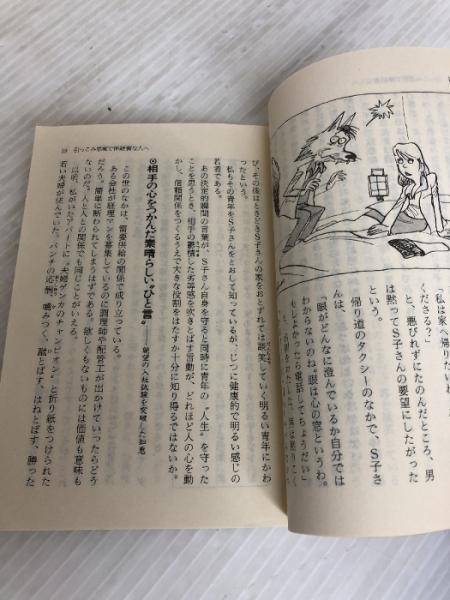 「私は家へ帰りたい
くださる？」
と、悪びれずにたのんだところ、男
は黙ってＳ子さんの要望にしたがった
という。
帰り道のタクシーのなかで、Ｓ子さ
んは、
「眼がどんなに澄んでいるか自分では
わからないのね。"眼は心の窓というわ。
もしよかったら電話してちょうだい」
19 引っこみ思案で神経質な人へ
び、その後はときどきＳ子さんの家をおとずれては談笑していく明るい青年にかわ
ったという。
私もその青年をＳ子さんをとおして知っているが、じつに健康的で明るい感じの
若者である。
あの決定的瞬間の言葉が、Ｓ子さん自身を守ると同時に青年の"人生"を守った
ことを思うとき、相手の鬱積した劣等感を吹きとばす言動が、どれほど人の心を動
かし、信頼関係をつくるうえで大きな役割をはたすか十分に知り得るではないか。
⊙相手の心をつかんだ素晴らしい"ひと言"
この世のなかは、需要供給の関係で成り立っている。
ある会社が経理マンを募集しているのに調理師や配管工が出かけていったらどう
だろう。簡単に断わられてしまうはずである。欲しくもないものには価値も意味も
ないのだ。人と人との関係でも同じことがいえる。
以前、私がいたアパートに"夫婦ゲンカのチャンピオン"と折り紙をつけられた
若い夫婦が住んでいた。パンチの応酬、噛みつく、蹴とばす、はねとばす、勝った